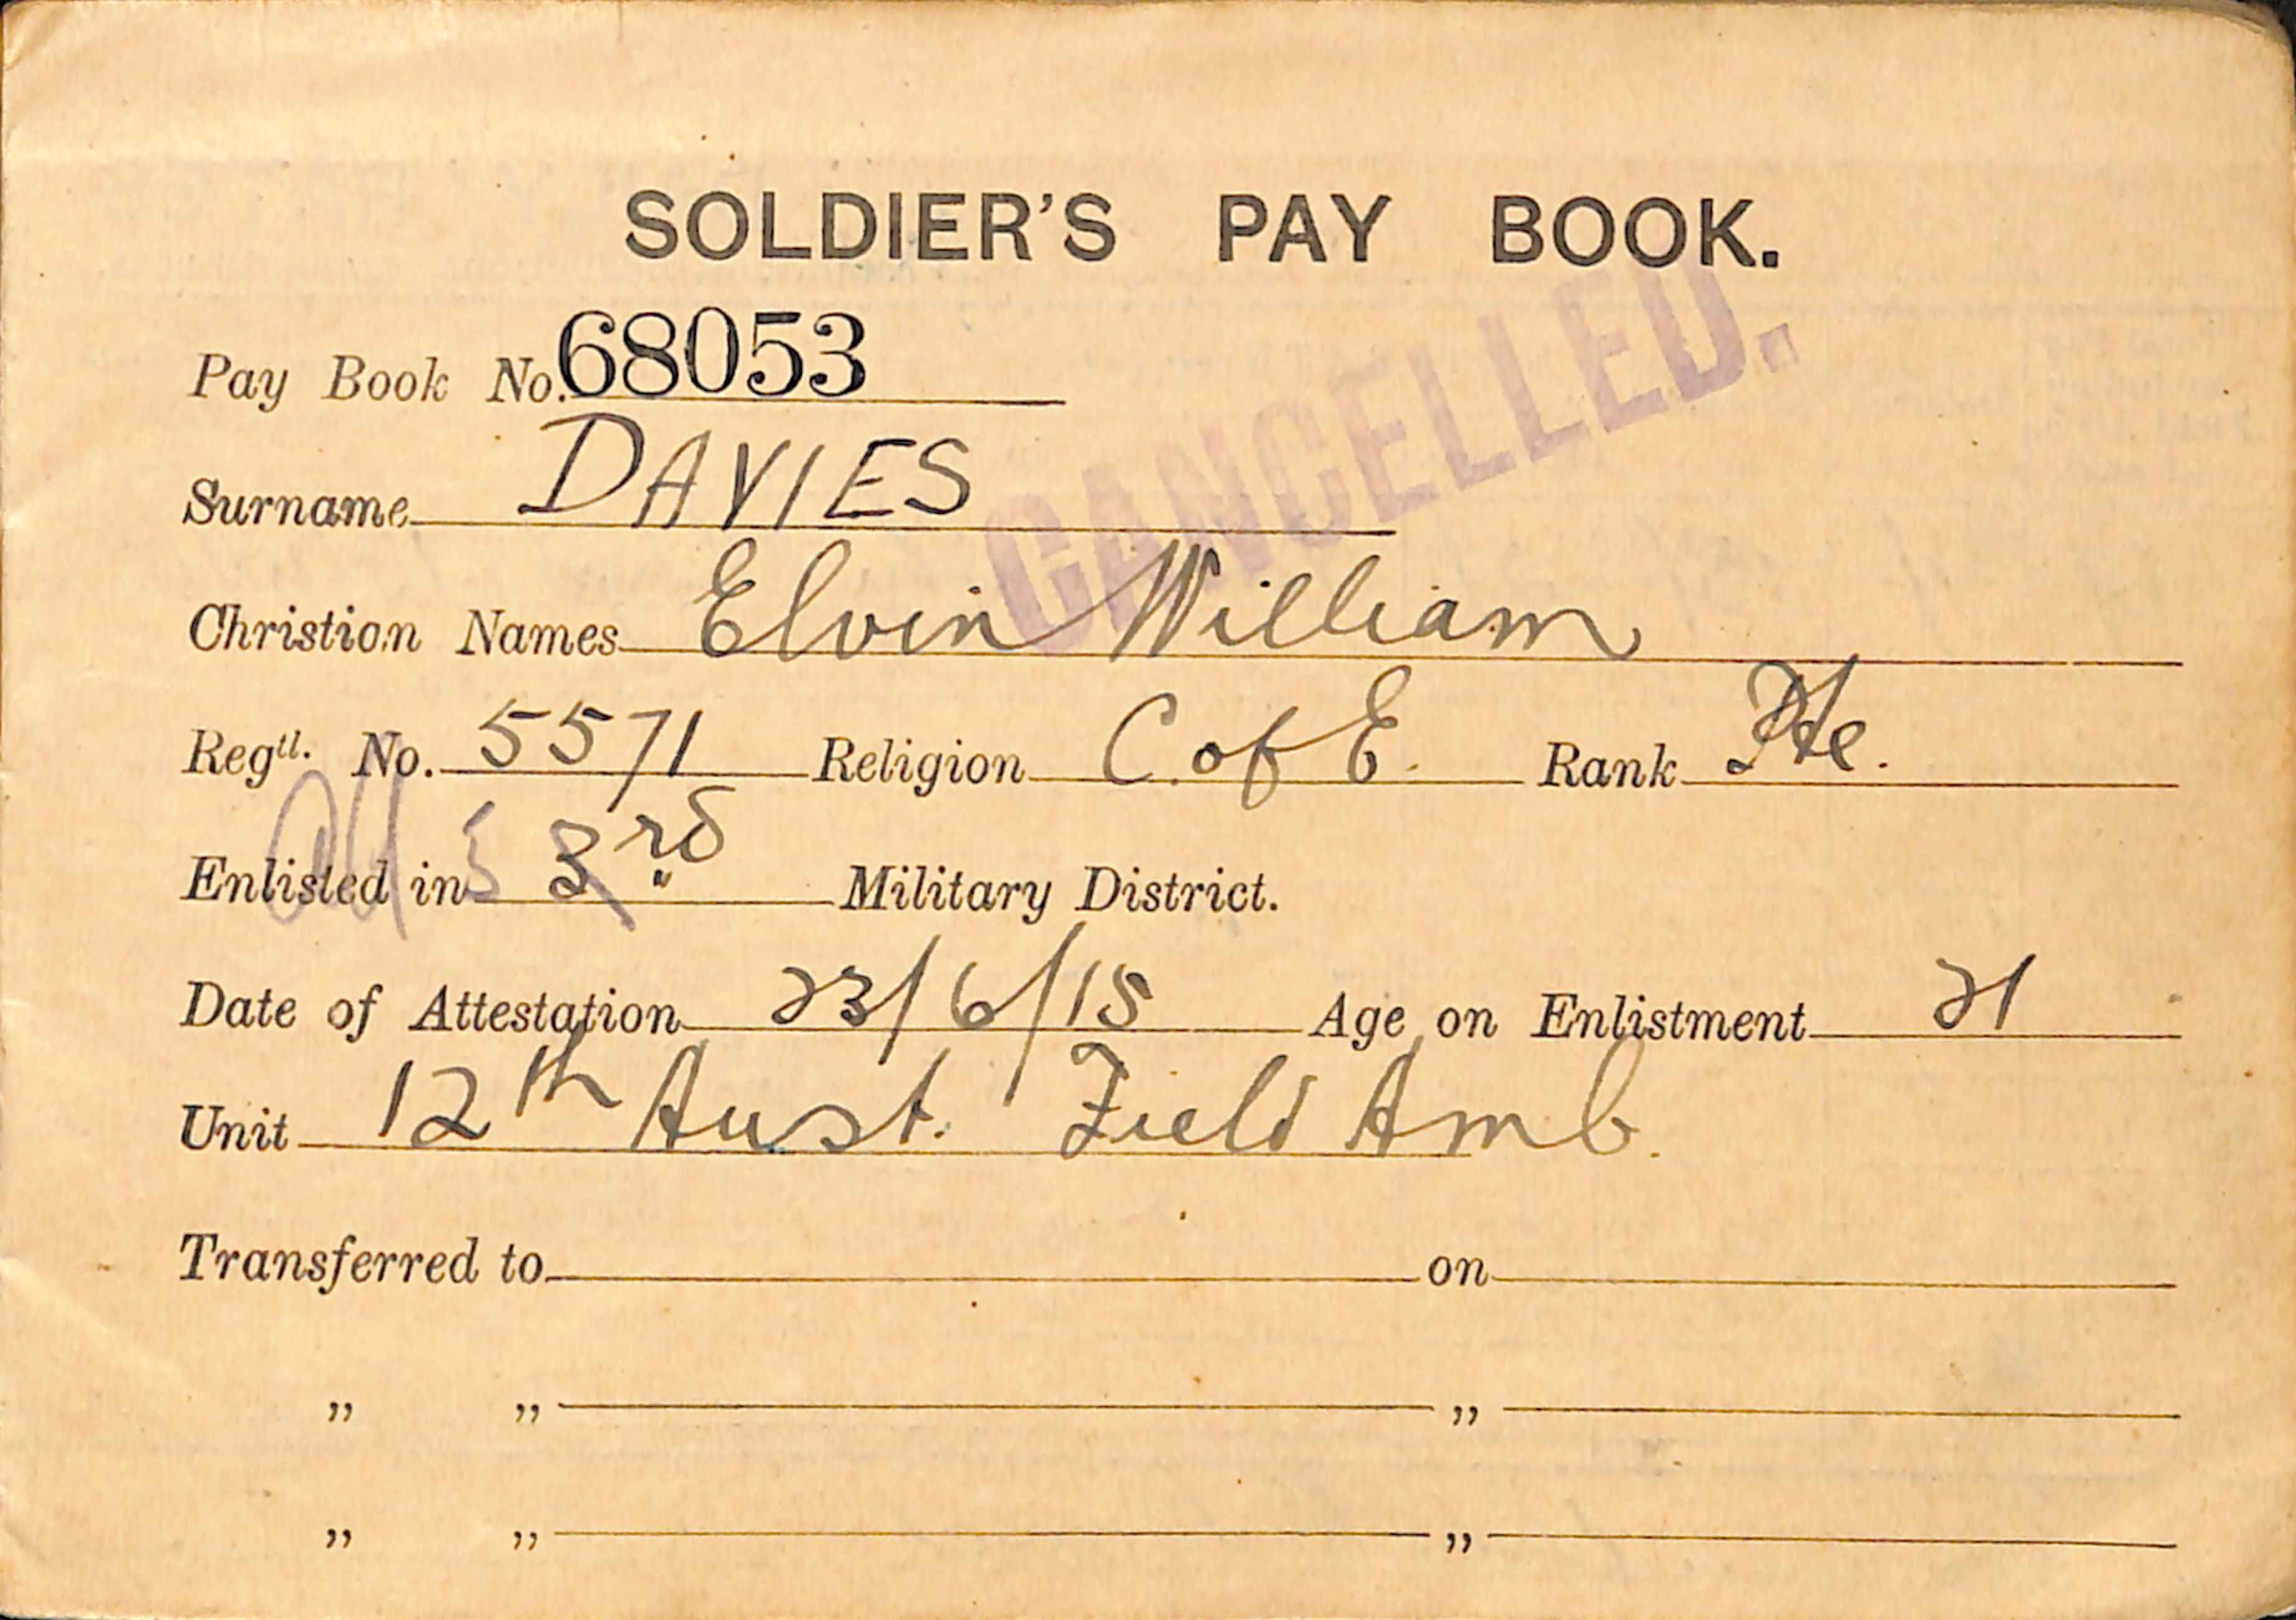 SOLDIER'S PAY BOOK.
CANCELLED.
Pay Book No. 68053
Surname DAVIES
Christian Names Elvin William
Regtl. No. 5571 Religion C. of E. Rank Pte.
Enlisted in 3rd Military District.
Date of Attestation 23/6/15 Age on Enlistment 21
Unit 12th Aust. Field Amb.
Transferred to on
" " "
" " "